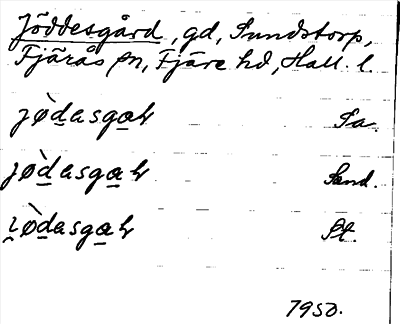 Jöddesgård, gd, Sundstorp,
Fjärås sn, Fjäre hd, Hall. l.
jø̀dasgaṟ Sa.
jø̀dasgaṟ Sand.
ø̀dasgaṟ St.
1950.